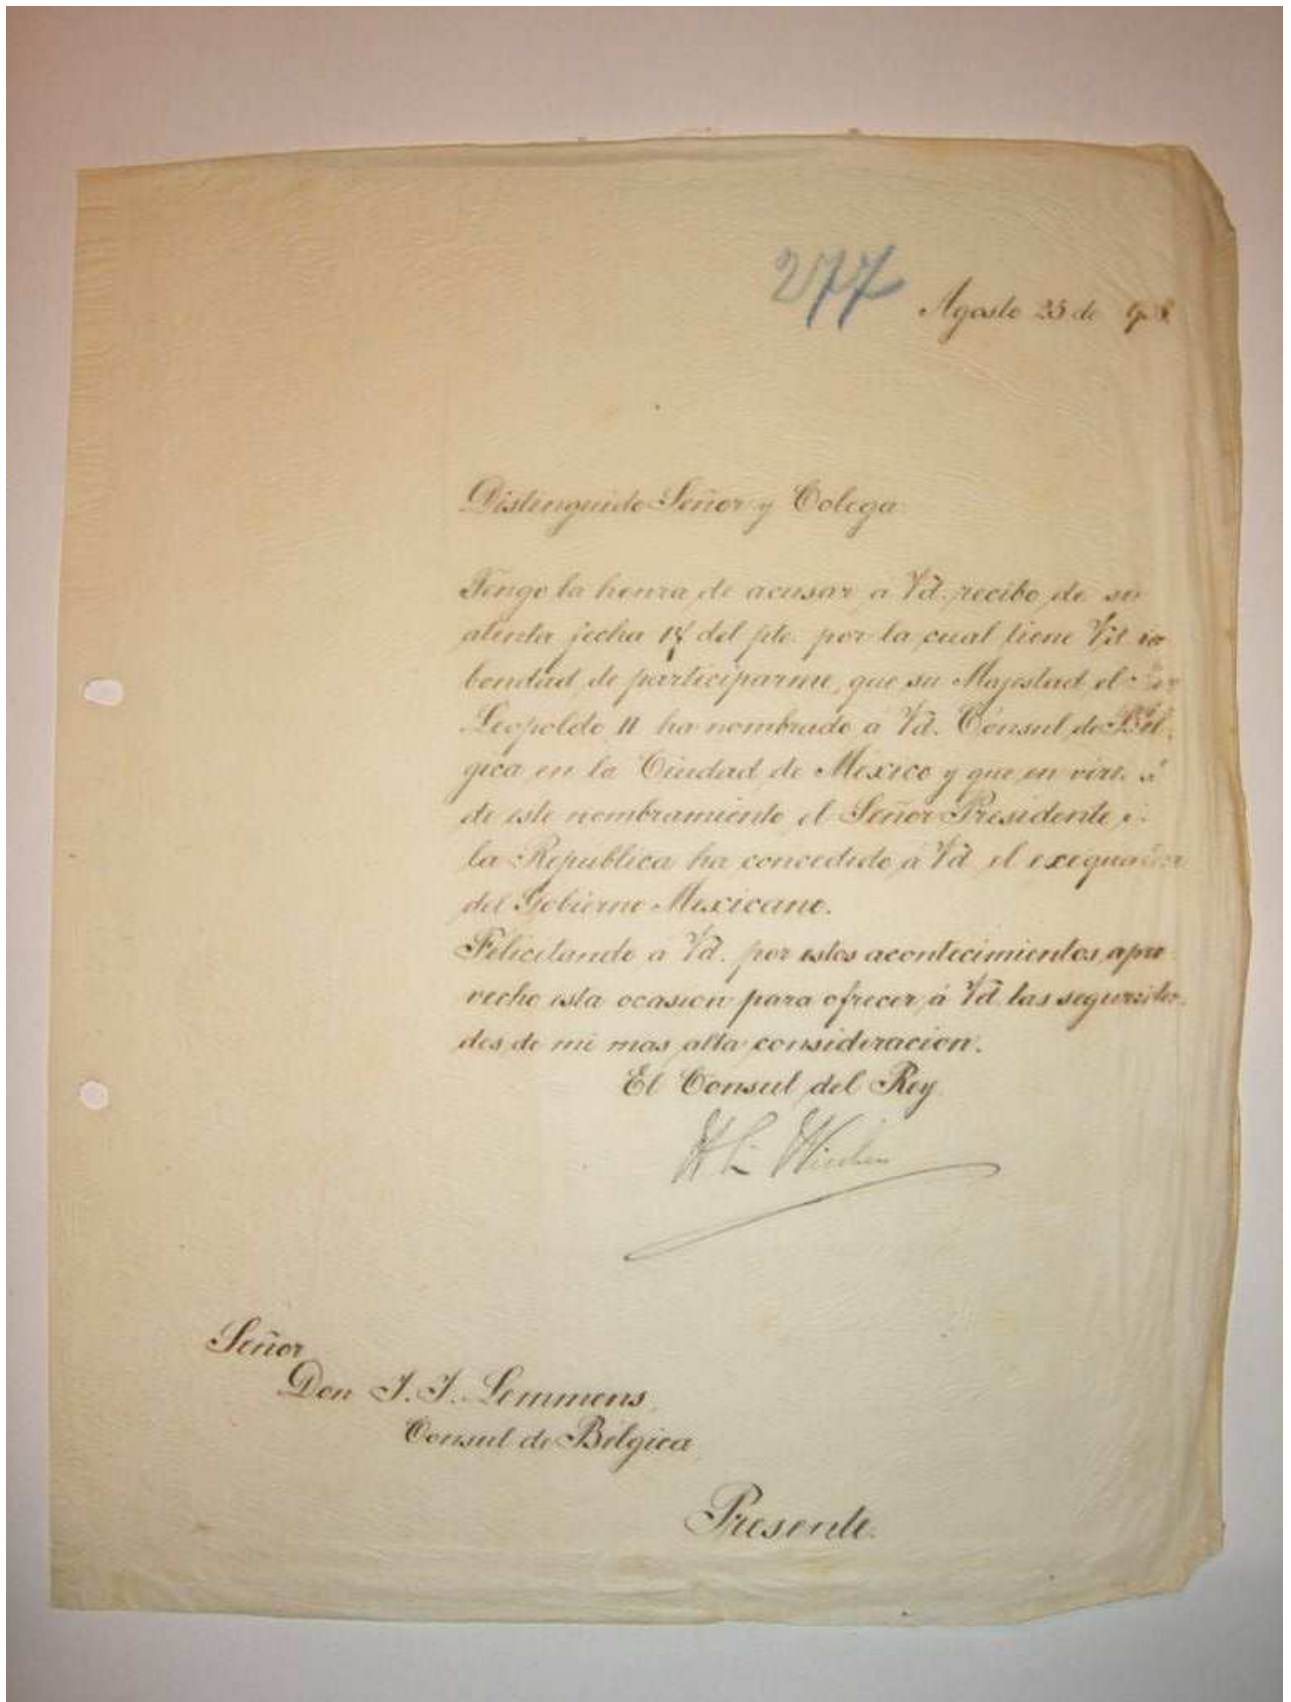 277
Agosto 25 de
Distinguido Señor y Colega.
Tengo la honra de acusar á Vd. recibo de su
atenta fecha del pte. por la cual tiene Vd la
bondad de participarme, que su Majestad el
Leopoldo II ha nombrado á Vd. Cónsul de Bél-
gica en la Ciudad de México y que en
de este nombramiento el Señor Presidente
la República ha concedido á Vd el
del Gobierno Mexicano.
Felicitando a Vd. por estos acontecimientos, apro-
vecho esta ocasion para ofrecer á Vd las segurida-
des de mi mas alta consideracion.
El Consul del Rey
Señor
Don J. J. Lemmens,
Consul de Bélgica
Presente.